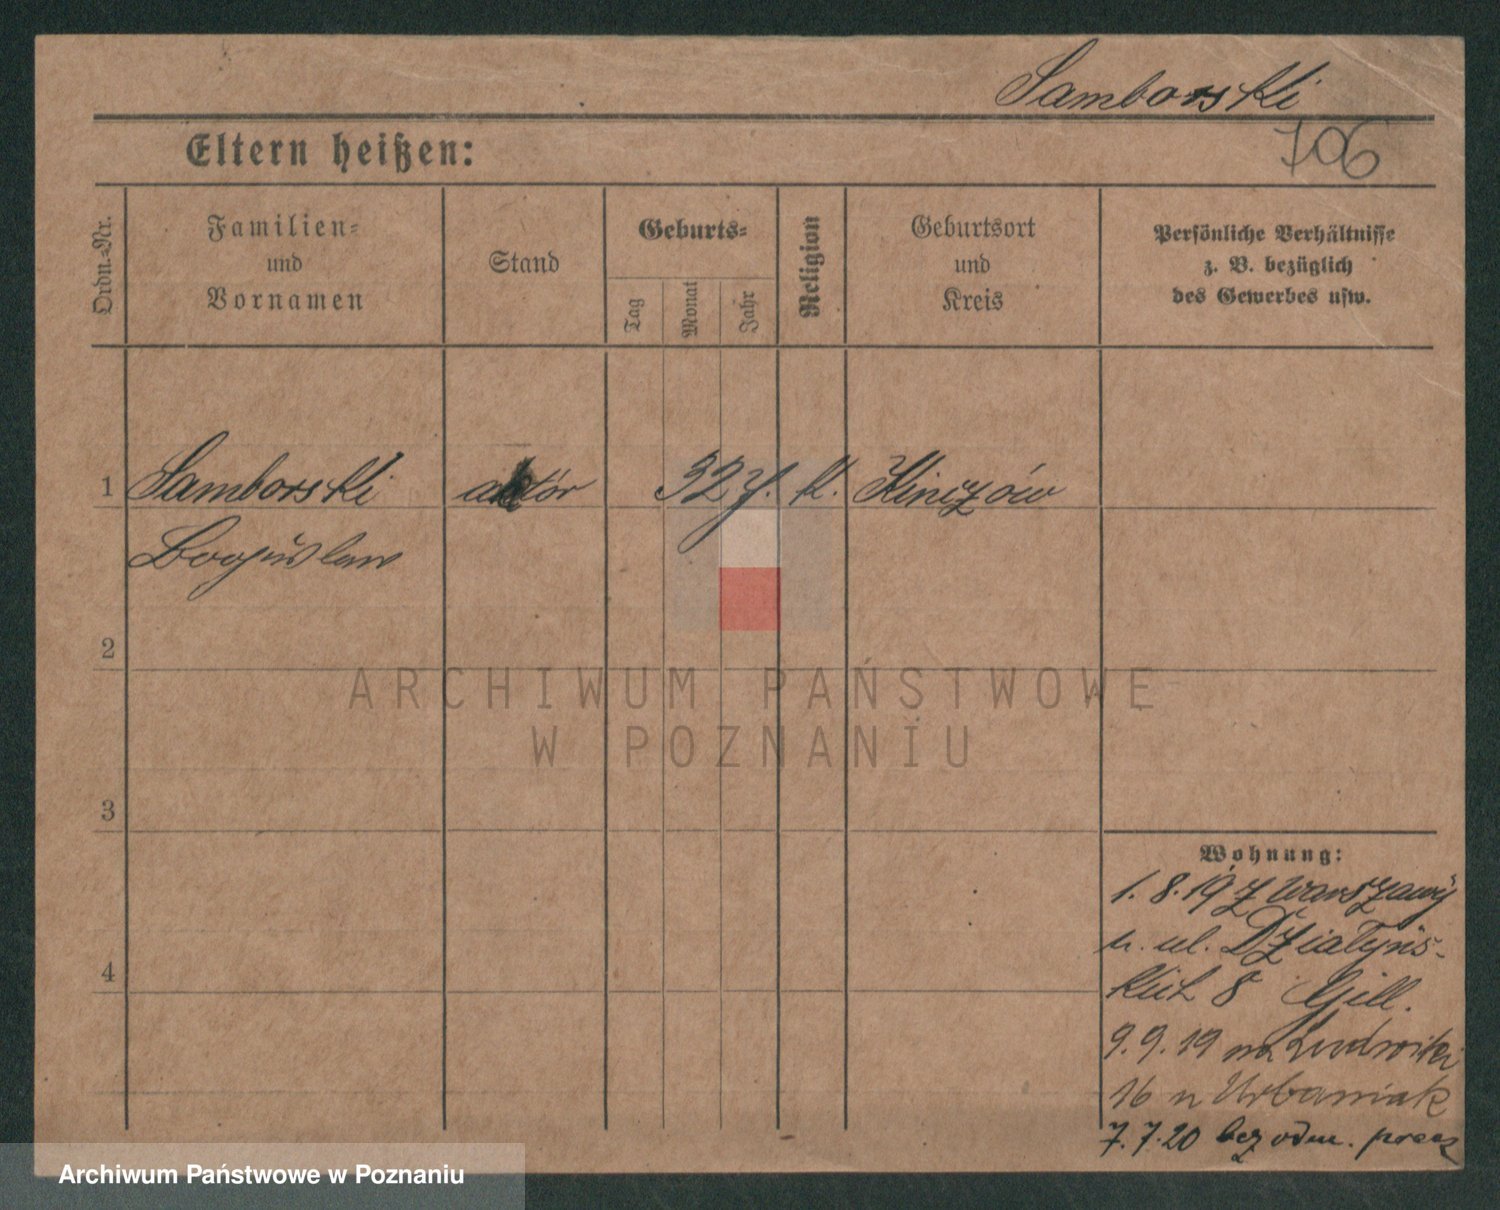 Samborski
706
Eltern heißen:
Ordn.-Nr.
Familien-
und
Vornamen
Stand
Geburts-
Tag
Monat
Jahr
Religion
Geburtsort
und
Kreis
Persönliche Verhältnisse
z. B. bezüglich
des Gewerbes usw.
1 Samborski aktór 32 j. k.
Bogusław
2
3
4
ARCHIWUM PAŃSTWOWE
W POZNANIU
Wohnung:
1.8.19 z Warszawy
n. ul. Działyńs-
kich 8
9.9.19 na Ludwiki
16 u Urbaniak
7.7.20 bez odm. precz
Archiwum Państwowe w Poznaniu